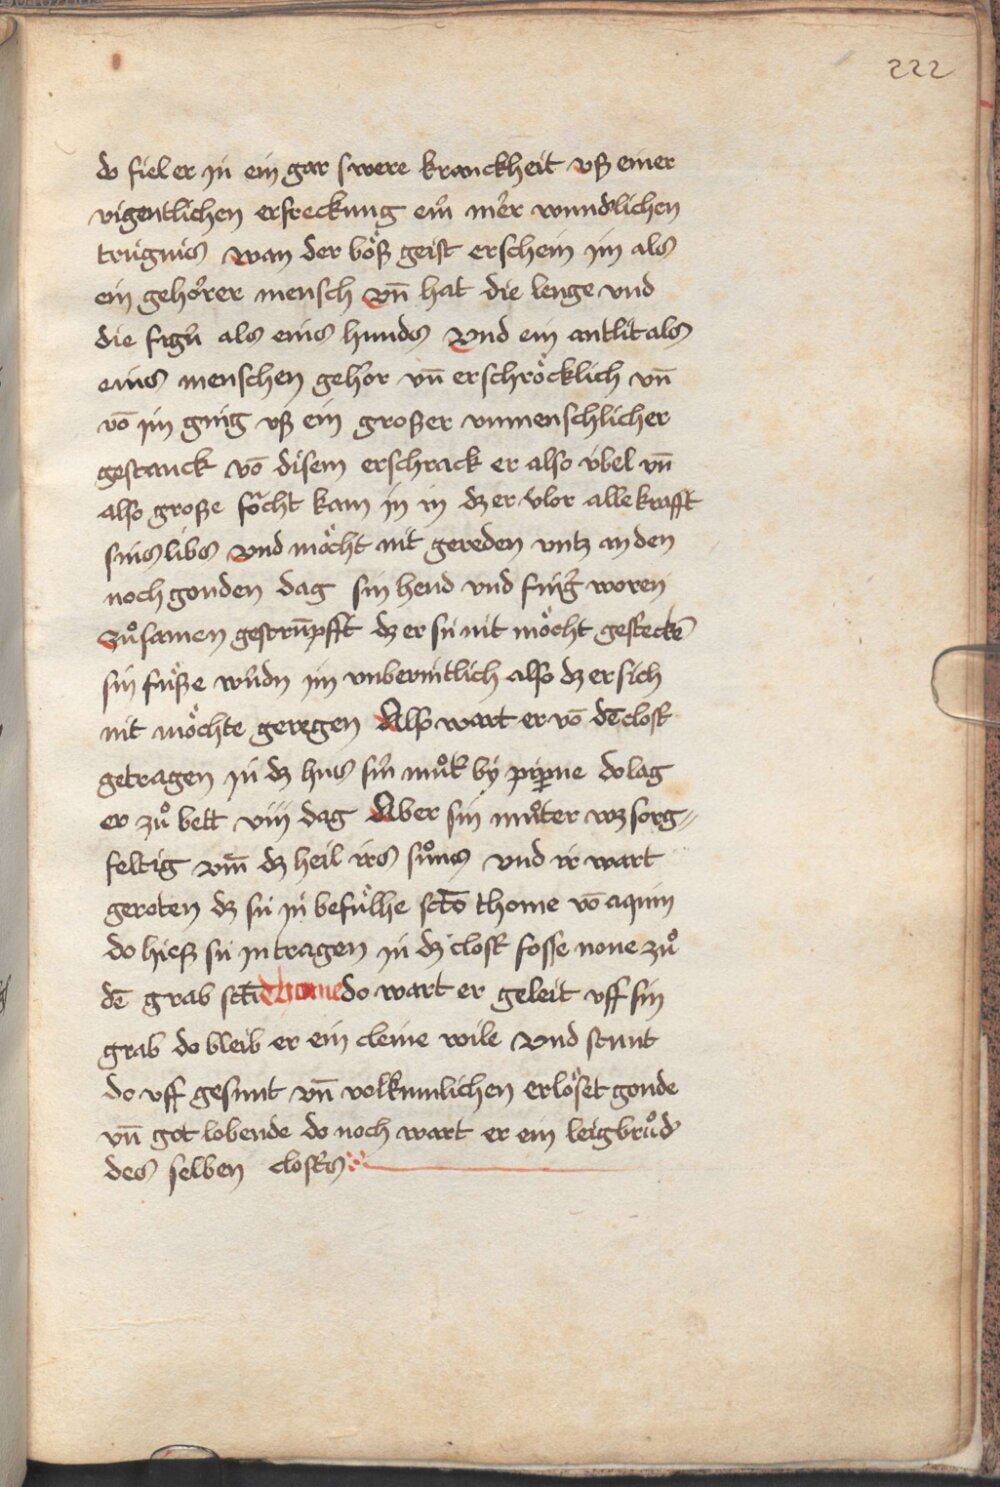 222
do fiel er in ein gar swere kranckheit vß einer
vigentlichen erfreckung eīn mer̄ wundlichen
trügnis wan der böß geist erschein im als
ein gehörer mensch vn̄ hat die lenge vnd
die figur̄ als eins hunds vnd ein antlit als
eins menschen gehor vn̄ erschröcklich vn̄
vō im ging vß ein großer vnmenschlicher
gestanck vō disem erschrack er also v̈bel vn̄
also große forcht kam in in dz er vlor alle krafft
sins libs vnd möcht nit gereden vntz an den
noch gonden dag sin hend vnd finḡ woren
zůsamen gestrūpfft dz er sü nit möcht gestreckē
sin füße wūrdn im vnbewitlich also dz er sich
nit möchte geregen Also wart er vō dē clost̄
getragen in dz hus sin̄ můt̄ by piperne do lag
er zů bett viij dag Aber sin můter wz sorg=
feltig vm̄ dz heil irs sůns vnd ir wart
geroten dz sü in befülhe sctō thome vō aquin
do hieß sü in tragen in dz clost̄ fosse noue zů
dē grab sctī Thome do wart er geleit vff sin
grab do bleib er ein cleine wile vnd stunt
do vff gesunt vn̄ volkumlichen erlöset gonde
vn̄ got lobende do noch wart er ein leigbrůd̄
des selben clost̄s